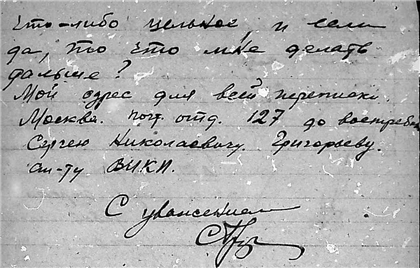 что-либо цельное и если
да, то что мне делать
дальше?
Мой адрес для всей переписки.
Москва. почт. отд. 127 до востребов
Сергею Николаевичу Григорьеву.
ВИКП.
С уважением